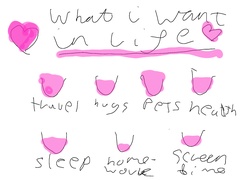 what i want
in life
travel hugs pets health
sleep home- screen
work time